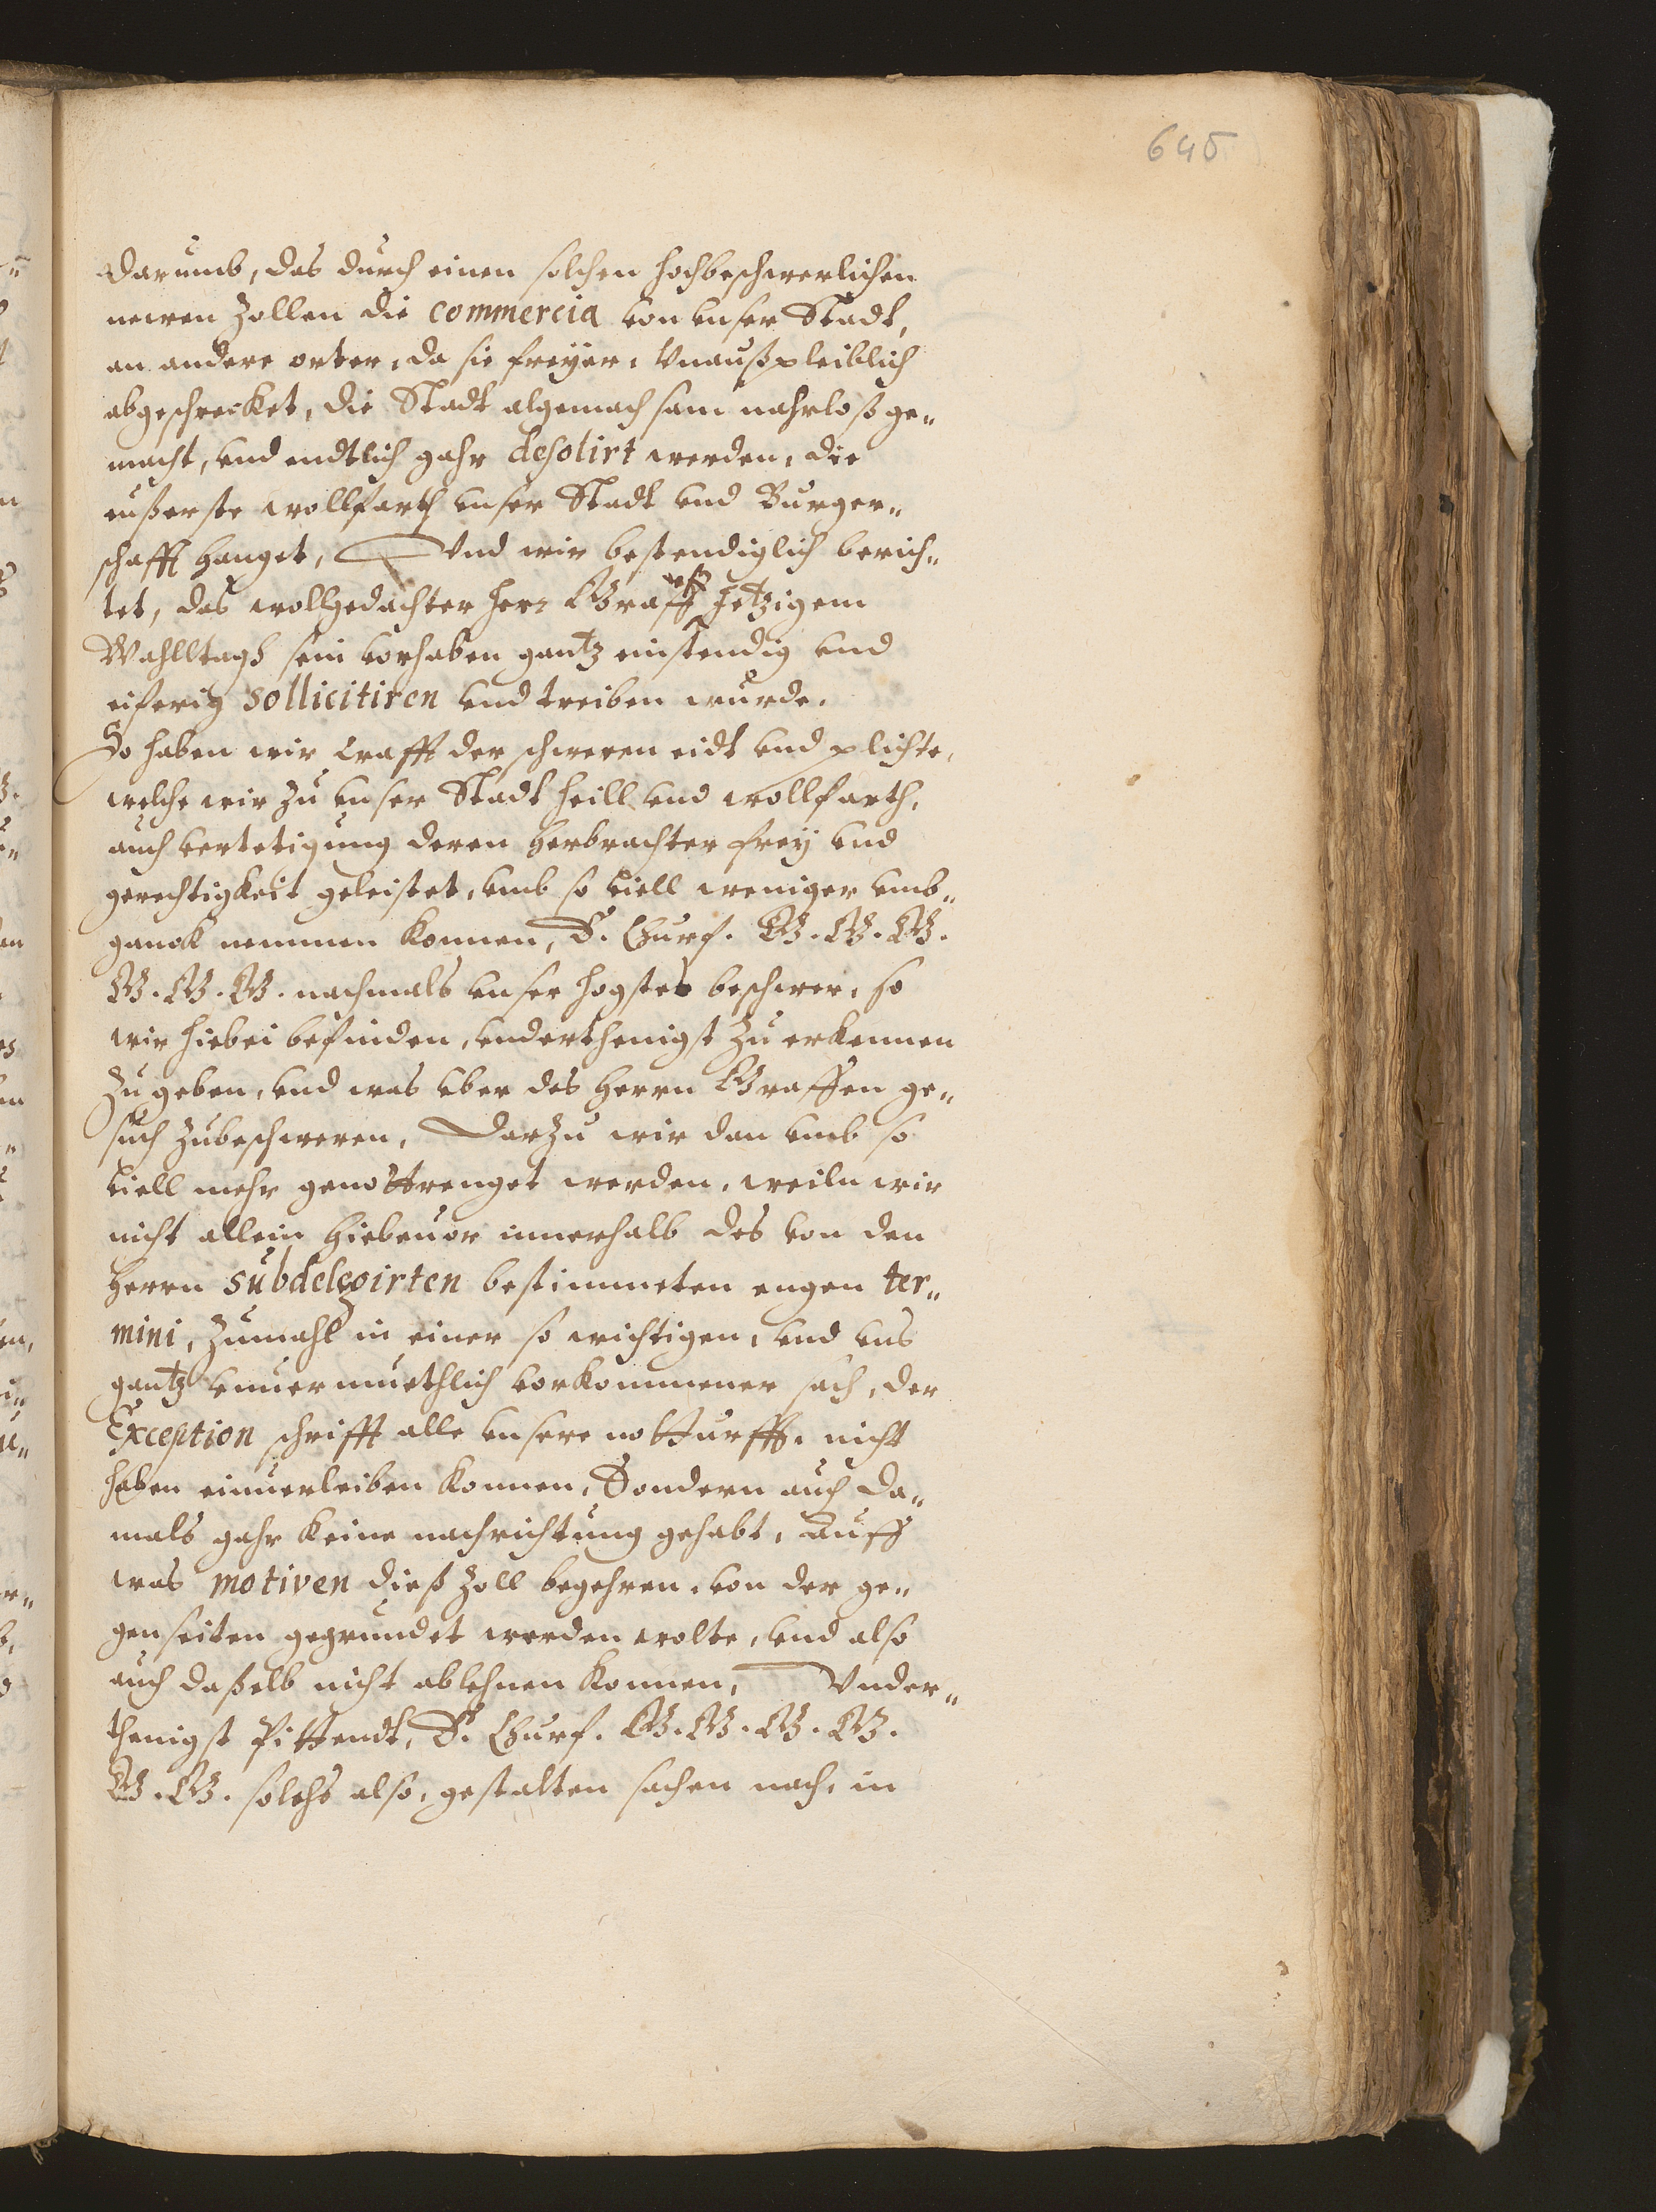 645
darumb, das durch einen solchen hochbeschwerlichen
newen Zollen die commercia von unser Stadt,
an andere orter, da sie freyer, Unaußpleiblich
abgeschrecket, die Stadt algemachsam nahrloß ge„
macht, und endtlich gahr desolirt werden, die
eußerste wollfarth unser Stadt und Burger„
schafft hanget, Und wir bestendiglich berich„
tet, das wollgedachter herr Graff uff Jetzigem
Wahlltags sein vorhaben gantz instendig und
eiferig sollicitiren und treiben wurde.
So haben wir krafft der schweren eidt und plichte,
welche wir zu unser Stadt heill und wollfarth,
auch vertetigung deren herbrachter frey und
gerechtigkeit geleistet, umb so viell weniger umb„
ganck nemmen konnen, E. Churf. G. G. G.
G. G. G. nachmals unser hogstes beschwer, so
wir hiebei befinden, underthenigst zu erkennen
zu geben, und was uber des herrn Graffen ge„
such zubeschweren, Darzu wir dan umb so
viell mehr genottrenget werden, weiln wir
nicht allein hiebeuor innerhalb des von den
herrn subdelegirten bestimmeten engen ter„
mini, zumahl in einer so wichtigen, und uns
gantz unuermuethlich vorkommener sach, der
Exception schrifft alle unsere notturfft, nicht
haben einuerleiben konnen, Sondern auch da„
mals gahr keine nachrichtung gehabt, Auff
was motiven dieß Zoll begehren, von der ge„
genseiten gegrundet werden wolte, und also
auch daßelb nicht ablehnen konnen, Under„
thenigst Pittendt, E. Churf. G. G. G. G.
G. G. solchs also, gestalten sachen nach, in